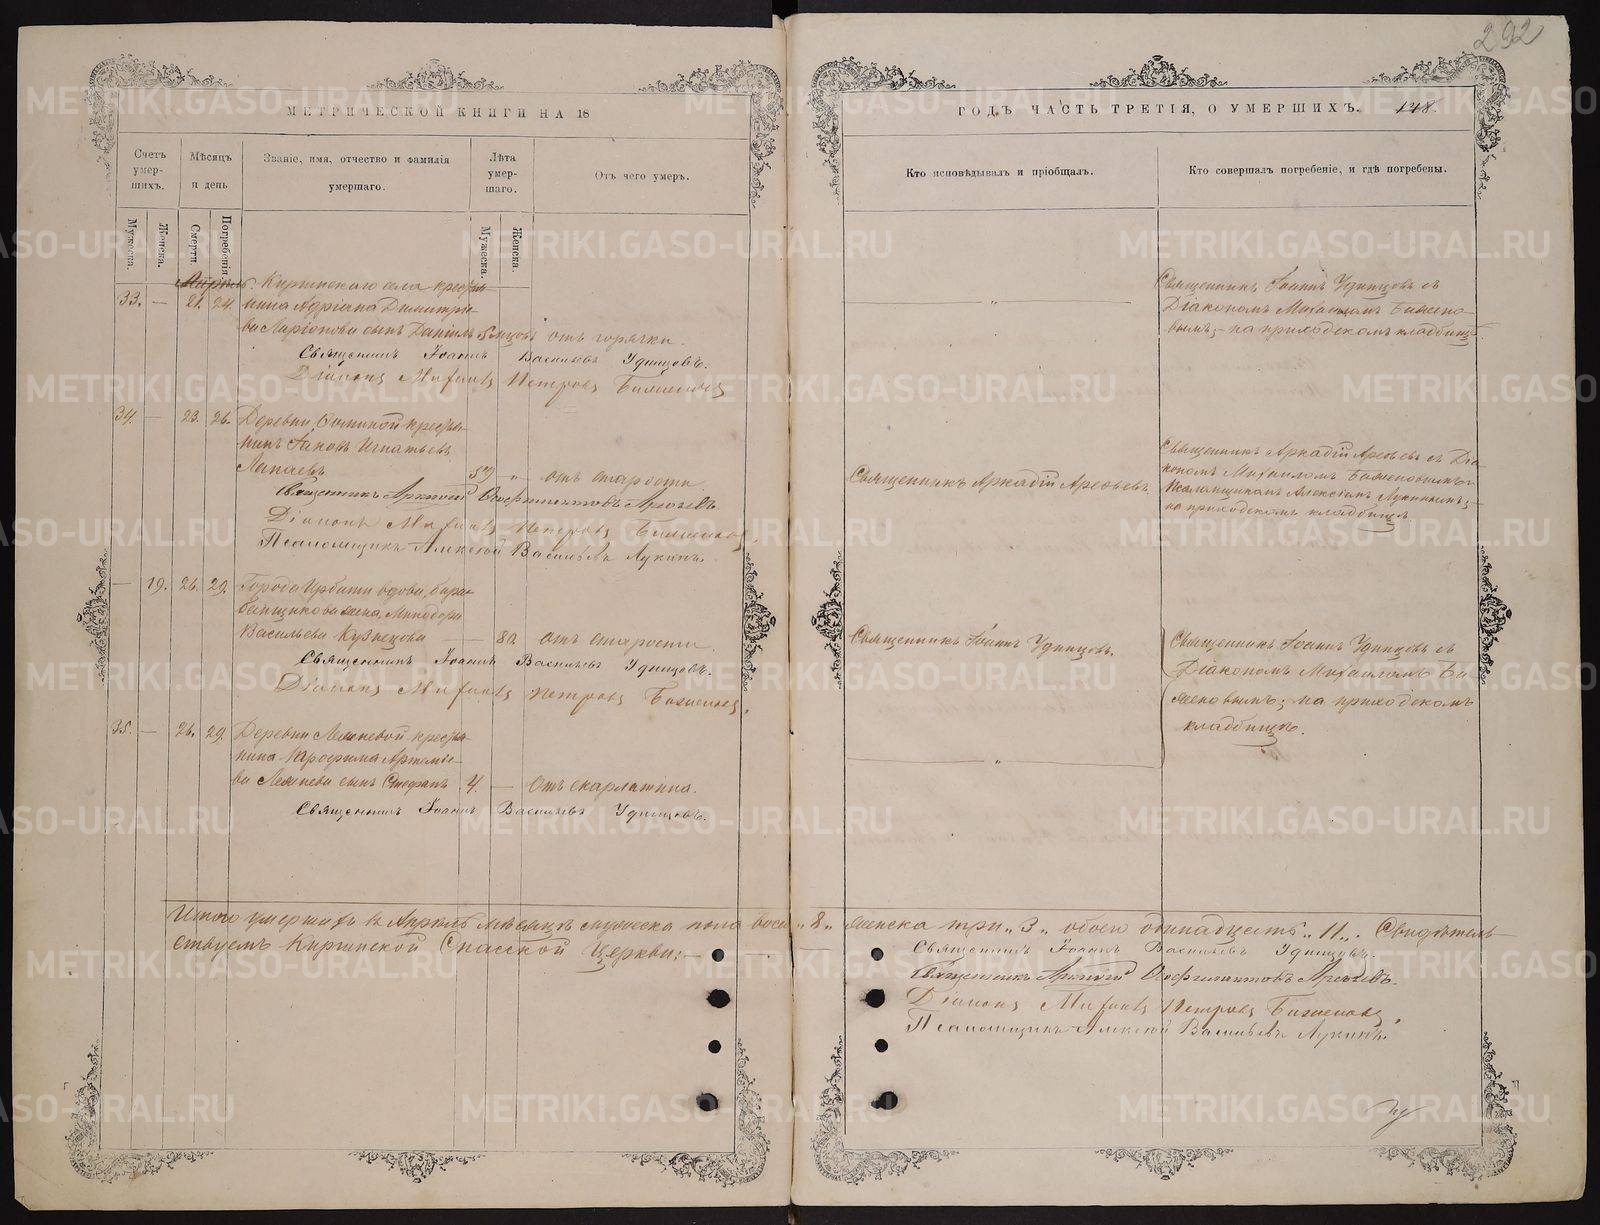 292
МЕТРИЧЕСКОЙ КНИГИ НА 18
Счетъ умер-шихъ.
Мѣсяцъ и день
Званіе, имя, отчество и фамилія умершаго.
Лѣта умер-шаго.
Отъ чего умеръ.
Мужеска.
Женска.
Смерти.
Погребенія.
Мужеска.
Женска.
Апрѣль. Киргинскаго села кресть
33. — 21. 24. янина Адріана Димитріе-
ва Ларіонова сынъ Даніилъ 5 мцовъ отъ горячки.
Священникъ Іоаннъ Васильевъ Удинцовъ.
Діаконъ Михаилъ Петровъ Баженовъ
34. — 23. 26. Деревни крестья-
нинъ Іаковъ Игнатьевъ
Лапаевъ " отъ старости
Священникъ Аркадій Феофилактовъ Арефьевъ.
Діаконъ Михаилъ Петровъ Баженовъ.
Псаломщикъ Алексѣй Васильевъ Лукинъ.
— 19. 26. 29. Города Ирбити вдова, бара-
банщикова жена, Минодора
Васильева Кузнецова — 80 отъ старости.
Священникъ Іоаннъ Васильевъ Удинцовъ.
Діаконъ Михаилъ Петровъ Баженовъ.
35. — 26. 29. Деревни крестья-
нина Трофима Артеміе-
ва сынъ Стефанъ 4. — Отъ скарлатина.
Священникъ Іоаннъ Васильевъ Удинцовъ.
Итого умершихъ въ Апрѣлѣ мѣсяцѣ мужеска пола восемь „8„ женска три „3„ обоего одиннадцать „11„. Свидѣтель-
ствуемъ Киргинской Спасской Церкви: —
Священникъ Іоаннъ Васильевъ Удинцовъ.
Священникъ Аркадій Феофилактовъ Арефьевъ.
Діаконъ Михаилъ Петровъ Баженовъ.
Псаломщикъ Алексѣй Васильевъ Лукинъ.
ГОДЪ ЧАСТЬ ТРЕТІЯ, О УМЕРШИХЪ. 148.
Кто исповѣдывалъ и пріобщалъ.
Кто совершалъ погребеніе, и гдѣ погребены.
"
Священникъ Іоаннъ Удинцовъ съ
Діакономъ Михаиломъ Бажено-
вымъ; — на приходскомъ кладбищѣ.
Священникъ Аркадій Арефьевъ
Священникъ Аркадій Арефьевъ съ Діа-
кономъ Михаиломъ Баженовымъ и
Псаломщикомъ Алексіемъ Лукинымъ; —
на приходскомъ кладбищѣ
Священникъ Іоаннъ Удинцовъ.
Священникъ Іоаннъ Удинцовъ съ
Діакономъ Михаиломъ Ба-
женовымъ; на приходскомъ
кладбищѣ.
"
METRIKI.GASO-URAL.RU